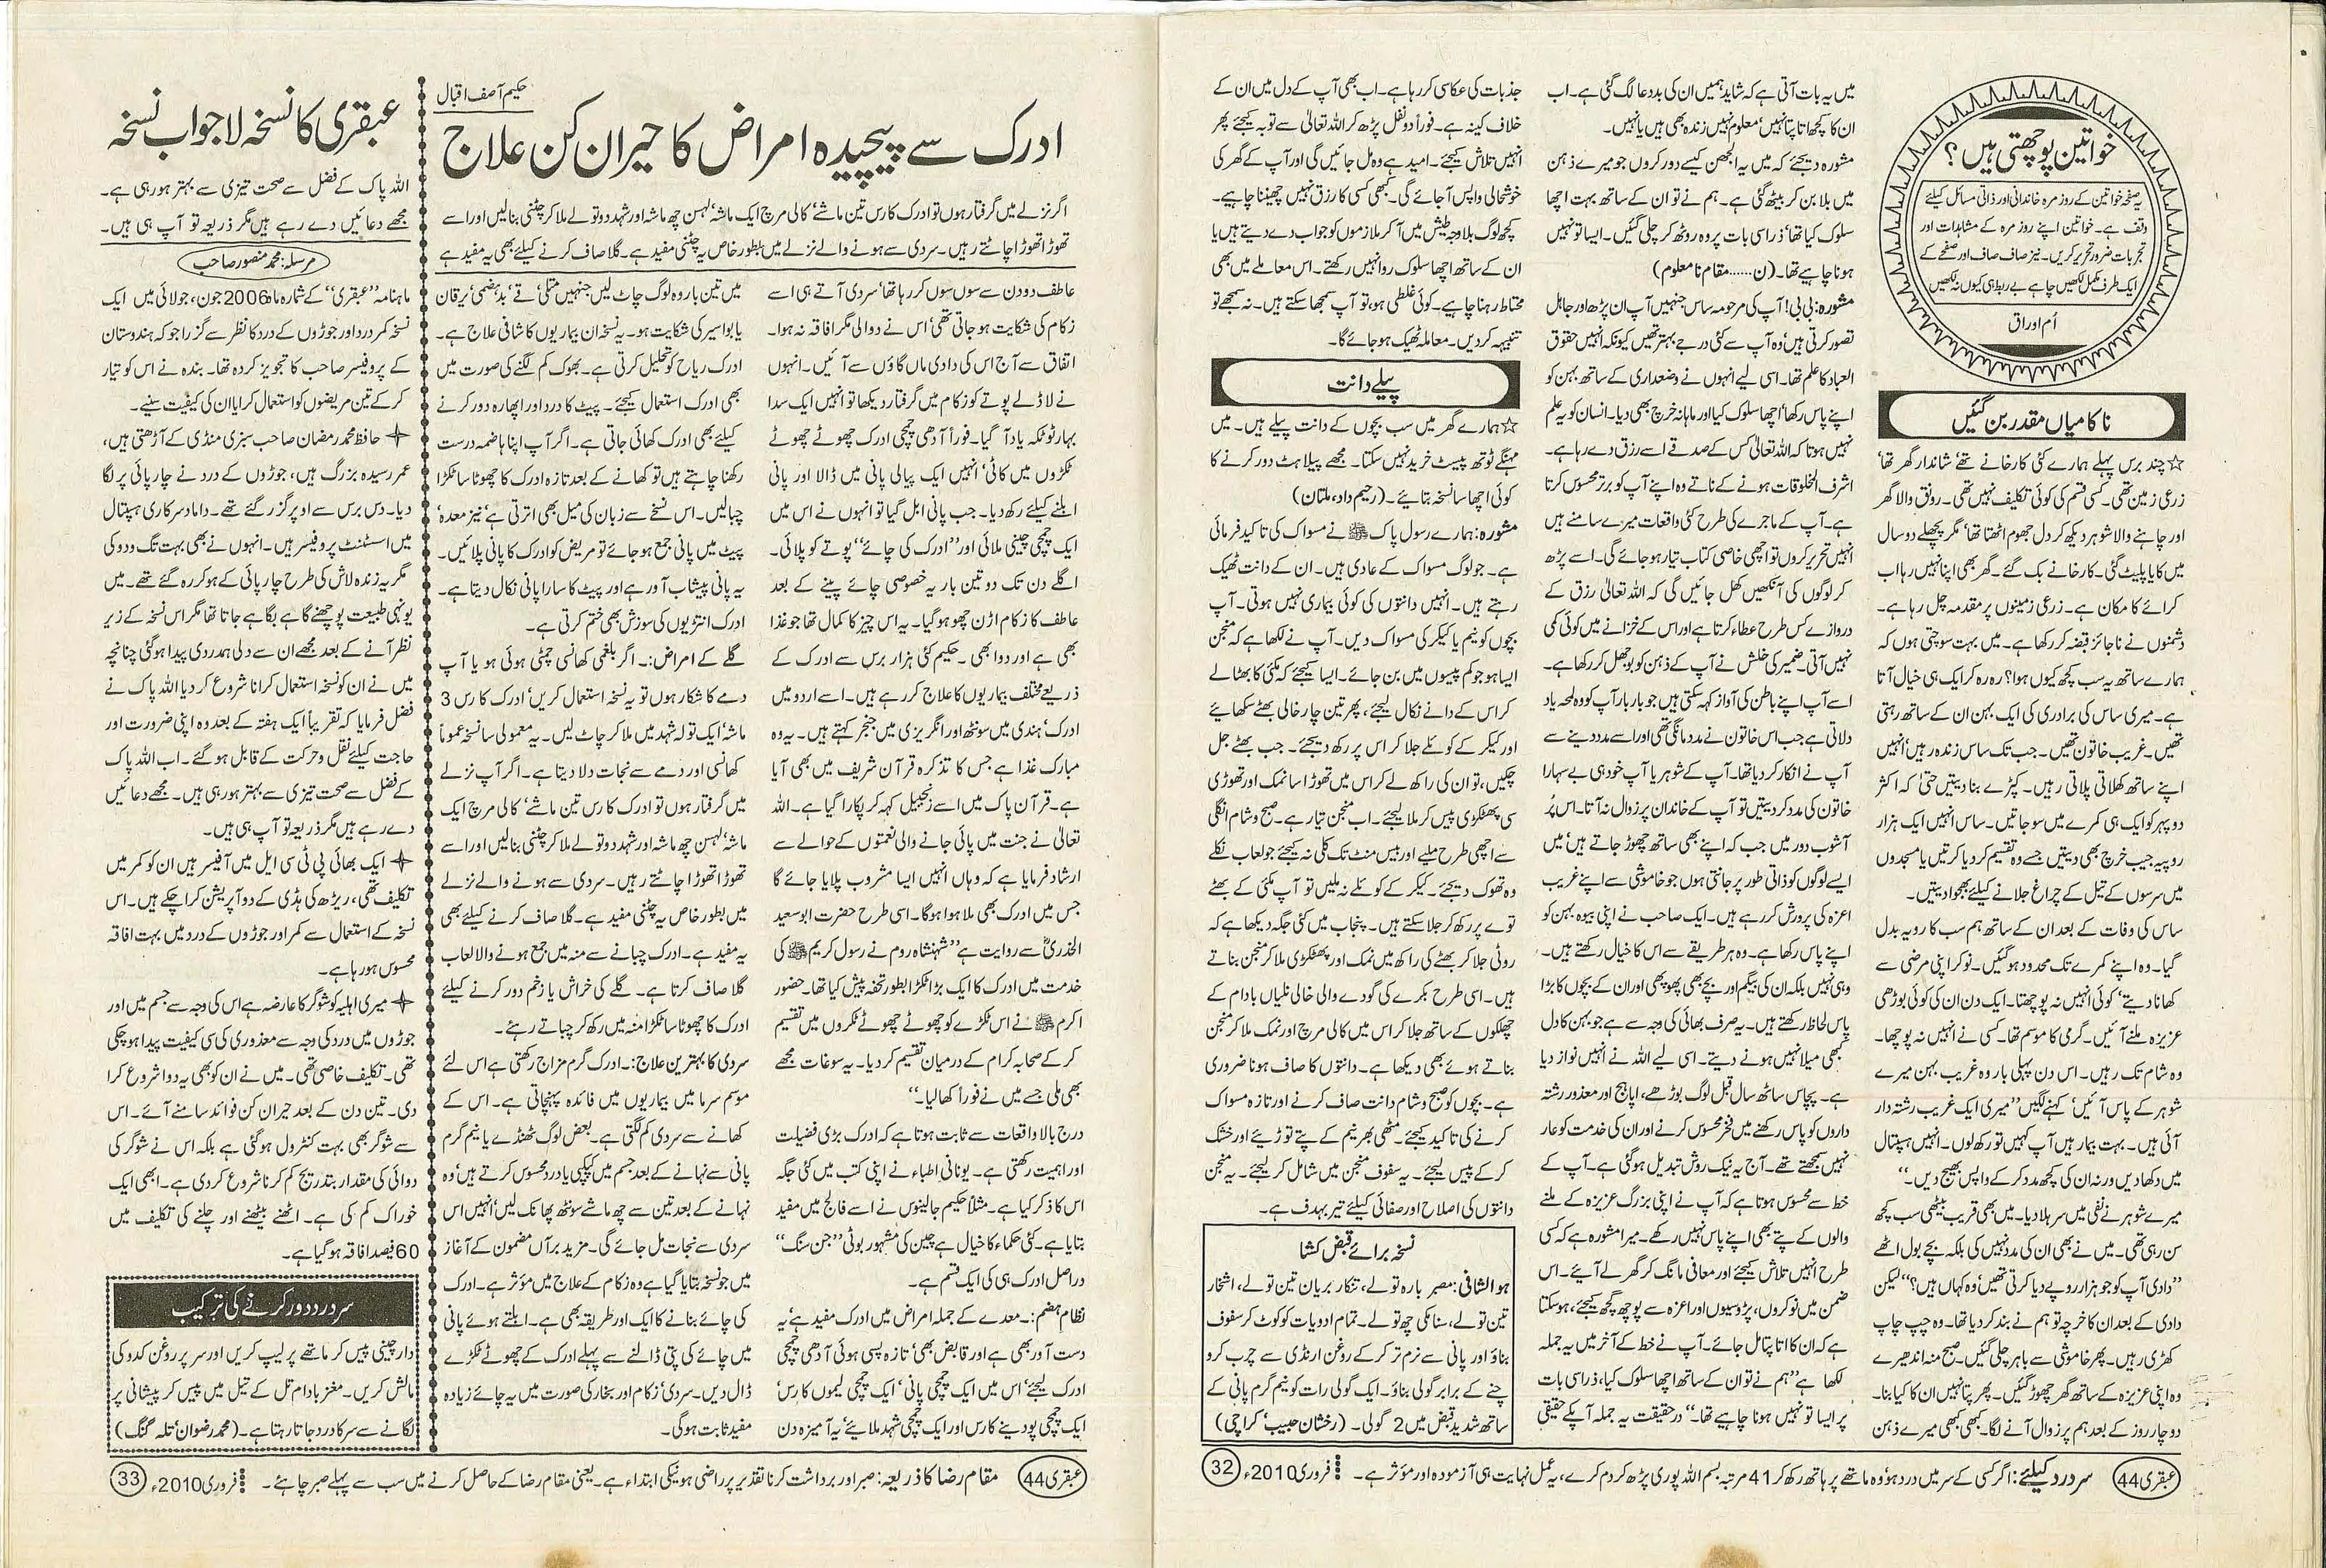 خواتین پوچھتی ہیں؟
یہ صفحہ خواتین کے روزمرہ خاندانی اور ذاتی مسائل کیلئے
وقف ہے۔ خواتین اپنے روزمرہ کے مشاہدات اور
تجربات ضرور تحریر کریں۔ نیز صاف صاف اور صفحے کے
ایک طرف مکمل لکھیں چاہے بے ربط ہی کیوں نہ لکھیں
اُم اوراق
ناکامیاں مقدر بن گئیں
☆چند برس پہلے ہمارے کئی کارخانے تھے‘ شاندار گھر تھا‘
زرعی زمین تھی۔ کسی قسم کی کوئی تکلیف نہیں تھی۔ رونق والا گھر
اور چاہنے والا شوہر دیکھ کر دل جھوم اٹھتا تھا‘ مگر پچھلے دو سال
میں کایا پلیٹ گئی۔ کارخانے بک گئے۔ گھر بھی اپنا نہیں رہا اب
کرائے کا مکان ہے۔ زرعی زمینوں پر مقدمہ چل رہا ہے۔
دشمنوں نے ناجائز قبضہ کر رکھا ہے۔ میں بہت سوچتی ہوں کہ
ہمارے ساتھ یہ سب کچھ کیوں ہوا؟ رہ رہ کر ایک ہی خیال آتا
ہے۔ میری ساس کی برادری کی ایک بہن ان کے ساتھ رہتی
تھیں۔ غریب خاتون تھیں۔ جب تک ساس زندہ رہیں‘ انہیں
اپنے ساتھ کھلاتی پلاتی رہیں۔ کپڑے بنا دیتیں حتیٰ کہ اکثر
دوپہر کو ایک ہی کمرے میں سو جاتیں۔ ساس انہیں ایک ہزار
روپیہ جیب خرچ بھی دیتیں جسے وہ تقسیم کر دیا کرتیں یا مسجدوں
میں سرسوں کے تیل کے چراغ جلانے کیلئے بھجوا دیتیں۔
ساس کی وفات کے بعد ان کے ساتھ ہم سب کا رویہ بدل
گیا۔ وہ اپنے کمرے تک محدود ہو گئیں۔ نوکر اپنی مرضی سے
کھانا دیتے‘ کوئی انہیں نہ پوچھتا۔ ایک دن ان کی کوئی بوڑھی
عزیزہ ملنے آئیں۔ گرمی کا موسم تھا۔ کسی نے انہیں نہ پوچھا۔
وہ شام تک رہیں۔ اس دن پہلی بار وہ غریب بہن میرے
شوہر کے پاس آئیں‘ کہنے لگیں ’’میری ایک غریب رشتہ دار
آئی ہیں۔ بہت بیمار ہیں آپ کہیں تو رکھ لوں۔ انہیں ہسپتال
میں دکھا دیں ورنہ ان کی کچھ مدد کر کے واپس بھیج دیں۔‘‘
میرے شوہر نے نفی میں سر ہلا دیا۔ میں بھی قریب بیٹھی سب کچھ
سن رہی تھی۔ میں نے بھی ان کی مدد نہیں کی بلکہ بچے بول اٹھے
’’دادی آپ کو جو ہزار روپے دیا کرتی تھیں‘ وہ کہاں ہیں؟‘‘ لیکن
دادی کے بعد ان کا خرچہ تو ہم نے بند کر دیا تھا۔ وہ چپ چاپ
کھڑی رہیں۔ پھر خاموشی سے باہر چلی گئیں۔ صبح منہ اندھیرے
وہ اپنی عزیزہ کے ساتھ گھر چھوڑ گئیں۔ پھر پتا نہیں ان کا کیا بنا۔
دو چار روز کے بعد ہم پر زوال آنے لگا۔ کبھی کبھی میرے ذہن
میں یہ بات آتی ہے کہ شاید ہمیں ان کی بددعا لگ گئی ہے۔ اب
ان کا کچھ اتا پتا نہیں‘ معلوم نہیں زندہ بھی ہیں یا نہیں۔
مشورہ دیجئے کہ میں یہ الجھن کیسے دور کروں جو میرے ذہن
میں بلا بن کر بیٹھ گئی ہے۔ ہم نے تو ان کے ساتھ بہت اچھا
سلوک کیا تھا‘ ذرا سی بات پر وہ روٹھ کر چلی گئیں۔ ایسا تو نہیں
ہونا چاہیے تھا۔ (ن......مقام نامعلوم)
مشورہ: بی بی! آپ کی مرحومہ ساس جنہیں آپ ان پڑھ اور جاہل
تصور کرتی ہیں‘ وہ آپ سے کئی درجے بہتر تھیں کیونکہ انہیں حقوق
العباد کا علم تھا۔ اسی لیے انہوں نے وضعداری کے ساتھ بہن کو
اپنے پاس رکھا‘ اچھا سلوک کیا اور ماہانہ خرچ بھی دیا۔ انسان کو یہ علم
نہیں ہوتا کہ اللہ تعالیٰ کس کے صدقے اسے رزق دے رہا ہے۔
اشرف المخلوقات ہونے کے ناتے وہ اپنے آپ کو برتر محسوس کرتا
ہے۔ آپ کے ماجرے کی طرح کئی واقعات میرے سامنے ہیں
انہیں تحریر کروں تو اچھی خاصی کتاب تیار ہو جائے گی۔ اسے پڑھ
کر لوگوں کی آنکھیں کھل جائیں گی کہ اللہ تعالیٰ رزق کے
دروازے کس طرح عطاء کرتا ہے اور اس کے خزانے میں کوئی کمی
نہیں آتی۔ ضمیر کی خلش نے آپ کے ذہن کو بوجھل کر رکھا ہے۔
اسے آپ اپنے باطن کی آواز کہہ سکتی ہیں جو بار بار آپ کو وہ لمحہ یاد
دلاتی ہے جب اس خاتون نے مدد مانگی تھی اور اسے مدد دینے سے
آپ نے انکار کر دیا تھا۔ آپ کے شوہر یا آپ خود ہی بے سہارا
خاتون کی مدد کر دیتیں تو آپ کے خاندان پر زوال نہ آتا۔ اس پُر
آشوب دور میں جب کہ اپنے بھی ساتھ چھوڑ جاتے ہیں‘ میں
ایسے لوگوں کو ذاتی طور پر جانتی ہوں جو خاموشی سے اپنے غریب
اعزہ کی پرورش کر رہے ہیں۔ ایک صاحب نے اپنی بیوہ بہن کو
اپنے پاس رکھا ہے۔ وہ ہر طریقے سے اس کا خیال رکھتے ہیں۔
وہی نہیں بلکہ ان کی بیگم اور بچے بھی پھوپھی اور ان کے بچوں کا بڑا
پاس لحاظ رکھتے ہیں۔ یہ صرف بھائی کی وجہ سے ہے جو بہن کا دل
کبھی میلا نہیں ہونے دیتے۔ اسی لیے اللہ نے انہیں نواز دیا
ہے۔ پچاس ساٹھ سال قبل لوگ بوڑھے، اپاہج اور معذور رشتہ
داروں کو پاس رکھنے میں فخر محسوس کرتے اور ان کی خدمت کو عار
نہیں سمجھتے تھے۔ آج یہ نیک روش تبدیل ہو گئی ہے۔ آپ کے
خط سے محسوس ہوتا ہے کہ آپ نے اپنی بزرگ عزیزہ کے ملنے
والوں کے پتے بھی اپنے پاس نہیں رکھے۔ میرا مشورہ ہے کہ کسی
طرح انہیں تلاش کیجئے اور معافی مانگ کر گھر لے آیئے۔ اس
ضمن میں نوکروں، پڑوسیوں اور اعزہ سے پوچھ گچھ کیجئے، ہو سکتا
ہے کہ ان کا اتا پتا مل جائے۔ آپ نے خط کے آخر میں یہ جملہ
لکھا ہے ’’ہم نے تو ان کے ساتھ اچھا سلوک کیا، ذرا سی بات
پر ایسا تو نہیں ہونا چاہیے تھا۔‘‘ درحقیقت یہ جملہ آپکے حقیقی
جذبات کی عکاسی کر رہا ہے۔ اب بھی آپ کے دل میں ان کے
خلاف کینہ ہے۔ فوراً دو نفل پڑھ کر اللہ تعالیٰ سے توبہ کیجئے پھر
انہیں تلاش کیجئے۔ امید ہے وہ مل جائیں گی اور آپ کے گھر کی
خوشحالی واپس آ جائے گی۔ کبھی کسی کا رزق نہیں چھیننا چاہیے۔
کچھ لوگ بلاوجہ طیش میں آ کر ملازموں کو جواب دے دیتے ہیں یا
ان کے ساتھ اچھا سلوک روا نہیں رکھتے۔ اس معاملے میں بھی
محتاط رہنا چاہیے۔ کوئی غلطی ہو تو آپ سمجھا سکتے ہیں۔ نہ سمجھے تو
تنبیہہ کر دیں۔ معاملہ ٹھیک ہو جائے گا۔
پیلے دانت
☆ہمارے گھر میں سب بچوں کے دانت پیلے ہیں۔ میں
مہنگے ٹوتھ پیسٹ خرید نہیں سکتا۔ مجھے پیلاہٹ دور کرنے کا
کوئی اچھا سا نسخہ بتایئے۔ (رحیم داد، ملتان)
مشورہ: ہمارے رسول پاک ﷺ نے مسواک کی تاکید فرمائی
ہے۔ جو لوگ مسواک کے عادی ہیں۔ ان کے دانت ٹھیک
رہتے ہیں۔ انہیں دانتوں کی کوئی بیماری نہیں ہوتی۔ آپ
بچوں کو نیم یا کیکر کی مسواک دیں۔ آپ نے لکھا ہے کہ منجن
ایسا ہو جو کم پیسوں میں بن جائے۔ ایسا کیجئے کہ مکئی کا بھٹا لے
کر اس کے دانے نکال لیجئے، پھر تین چار خالی بھٹے سکھایئے
اور کیکر کے کوئلے جلا کر اس پر رکھ دیجئے۔ جب بھٹے جل
چکیں، تو ان کی راکھ لے کر اس میں تھوڑا سا نمک اور تھوڑی
سی پھٹکڑی پیس کر ملا لیجئے۔ اب منجن تیار ہے۔ صبح و شام انگلی
سے اچھی طرح ملیے اور بیس منٹ تک کلی نہ کیجئے جو لعاب نکلے
وہ تھوک دیجئے۔ کیکر کے کوئلے نہ ملیں تو آپ مکئی کے بھٹے
توے پر رکھ کر جلا سکتے ہیں۔ پنجاب میں کئی جگہ دیکھا ہے کہ
روئی جلا کر بھٹے کی راکھ میں نمک اور پھٹکڑی ملا کر منجن بناتے
ہیں۔ اسی طرح بکرے کی گودے والی خالی نلیاں بادام کے
چھلکوں کے ساتھ جلا کر اس میں کالی مرچ اور نمک ملا کر منجن
بناتے ہوئے بھی دیکھا ہے۔ دانتوں کا صاف ہونا ضروری
ہے۔ بچوں کو صبح و شام دانت صاف کرنے اور تازہ مسواک
کرنے کی تاکید کیجئے۔ مٹھی بھر نیم کے پتے توڑیئے اور خشک
کر کے پیس لیجئے۔ یہ سفوف منجن میں شامل کر لیجئے۔ یہ منجن
دانتوں کی اصلاح اور صفائی کیلئے تیر بہدف ہے۔
نسخہ برائے قبض کشا
ھو الشافی: مصبر بارہ تولے، تنکار بریاں تین تولے، اشخار
تین تولے، سنا مکی چھ تولے۔ تمام ادویات کو کوٹ کر سفوف
بناؤ اور پانی سے نرم تر کر کے روغن ارنڈی سے چرب کرو
چنے کے برابر گولی بناؤ۔ ایک گولی رات کو نیم گرم پانی کے
ساتھ شدید قبض میں 2 گولی۔ (رخشان حبیب‘ کراچی)
عبقری 44 سر درد کیلئے: اگر کسی کے سر میں درد ہو‘ وہ ماتھے پر ہاتھ رکھ کر 41 مرتبہ بسم اللہ پوری پڑھ کر دم کرے، یہ عمل نہایت ہی آزمودہ اور مؤثر ہے۔ فروری 2010ء 32
حکیم آصف اقبال
ادرک سے پیچیدہ امراض کا حیران کن علاج
اگر نزلے میں گرفتار ہوں تو ادرک کا رس تین ماشے‘ کالی مرچ ایک ماشہ‘ لہسن چھ ماشہ اور شہد دو تولے ملا کر چٹنی بنا لیں اور اسے
تھوڑا تھوڑا چاٹتے رہیں۔ سردی سے ہونے والے نزلے میں بطور خاص یہ چٹنی مفید ہے۔ گلا صاف کرنے کیلئے بھی یہ مفید ہے
عاطف دو دن سے سوں سوں کر رہا تھا‘ سردی آتے ہی اسے
زکام کی شکایت ہو جاتی تھی‘ اس نے دوا لی مگر افاقہ نہ ہوا۔
اتفاق سے آج اس کی دادی ماں گاؤں سے آئیں۔ انہوں
نے لاڈلے پوتے کو زکام میں گرفتار دیکھا تو انہیں ایک سدا
بہار ٹوٹکہ یاد آ گیا۔ فوراً آدھی چمچی ادرک چھوٹے چھوٹے
ٹکڑوں میں کاٹی‘ انہیں ایک پیالی پانی میں ڈالا اور پانی
ابلنے کیلئے رکھ دیا۔ جب پانی ابل گیا تو انہوں نے اس میں
ایک چمچی چینی ملائی اور ’’ادرک کی چائے‘‘ پوتے کو پلائی۔
اگلے دن تک دو تین بار یہ خصوصی چائے پینے کے بعد
عاطف کا زکام اڑن چھو ہو گیا۔ یہ اس چیز کا کمال تھا جو غذا
بھی ہے اور دوا بھی۔ حکیم کئی ہزار برس سے ادرک کے
ذریعے مختلف بیماریوں کا علاج کر رہے ہیں۔ اسے اردو میں
ادرک‘ ہندی میں سونٹھ اور انگریزی میں جنجر کہتے ہیں۔ یہ وہ
مبارک غذا ہے جس کا تذکرہ قرآن شریف میں بھی آیا
ہے۔ قرآن پاک میں اسے زنجبیل کہہ کر پکارا گیا ہے۔ اللہ
تعالیٰ نے جنت میں پائی جانے والی نعمتوں کے حوالے سے
ارشاد فرمایا ہے کہ وہاں انہیں ایسا مشروب پلایا جائے گا
جس میں ادرک بھی ملا ہوا ہوگا۔ اسی طرح حضرت ابوسعید
الخدریؓ سے روایت ہے ’’شہنشاہ روم نے رسول کریم ﷺ کی
خدمت میں ادرک کا ایک بڑا ٹکڑا بطور تحفہ پیش کیا تھا۔ حضور
اکرم ﷺ نے اس ٹکڑے کو چھوٹے چھوٹے ٹکروں میں تقسیم
کر کے صحابہ کرام کے درمیان تقسیم کر دیا۔ یہ سوغات مجھے
بھی ملی جسے میں نے فوراً کھا لیا۔‘‘
درج بالا واقعات سے ثابت ہوتا ہے کہ ادرک بڑی فضیلت
اور اہمیت رکھتی ہے۔ یونانی اطباء نے اپنی کتب میں کئی جگہ
اس کا ذکر کیا ہے۔ مثلاً حکیم جالینوس نے اسے فالج میں مفید
بتایا ہے۔ کئی حکماء کا خیال ہے چین کی مشہور بوٹی ’’جن سنگ‘‘
دراصل ادرک ہی کی ایک قسم ہے۔
نظام ہضم:۔ معدے کے جملہ امراض میں ادرک مفید ہے‘ یہ
دست آور بھی ہے اور قابض بھی‘ تازہ پسی ہوئی آدھی چمچی
ادرک لیجئے‘ اس میں ایک چمچی پانی‘ ایک چمچی لیموں کا رس‘
ایک چمچی پودینے کا رس اور ایک چمچی شہد ملایئے‘ یہ آمیزہ دن
میں تین بار وہ لوگ چاٹ لیں جنہیں متلی‘ قے‘ بدہضمی‘ یرقان
یا بواسیر کی شکایت ہو۔ یہ نسخہ ان بیماریوں کا شافی علاج ہے۔
ادرک ریاح کو تحلیل کرتی ہے۔ بھوک کم لگنے کی صورت میں
بھی ادرک استعمال کیجئے۔ پیٹ کا درد اور اپھارہ دور کرنے
کیلئے بھی ادرک کھائی جاتی ہے۔ اگر آپ اپنا ہاضمہ درست
رکھنا چاہتے ہیں تو کھانے کے بعد تازہ ادرک کا چھوٹا سا ٹکڑا
چبا لیں۔ اس نسخے سے زبان کی میل بھی اترتی ہے‘ نیز معدہ‘
پیٹ میں پانی جمع ہو جائے تو مریض کو ادرک کا پانی پلائیں۔
یہ پانی پیشاب آور ہے اور پیٹ کا سارا پانی نکال دیتا ہے۔
ادرک انتڑیوں کی سوزش بھی ختم کرتی ہے۔
گلے کے امراض:۔ اگر بلغمی کھانسی چمٹی ہوئی ہو یا آپ
دمے کا شکار ہوں تو یہ نسخہ استعمال کریں‘ ادرک کا رس 3
ماشہ‘ ایک تولہ شہد میں ملا کر چاٹ لیں۔ یہ معمولی سا نسخہ عموماً
کھانسی اور دمے سے نجات دلا دیتا ہے۔ اگر آپ نزلے
میں گرفتار ہوں تو ادرک کا رس تین ماشے‘ کالی مرچ ایک
ماشہ‘ لہسن چھ ماشہ اور شہد دو تولے ملا کر چٹنی بنا لیں اور اسے
تھوڑا تھوڑا چاٹتے رہیں۔ سردی سے ہونے والے نزلے
میں بطور خاص یہ چٹنی مفید ہے۔ گلا صاف کرنے کیلئے بھی
یہ مفید ہے۔ ادرک چبانے سے منہ میں جمع ہونے والا لعاب
گلا صاف کرتا ہے۔ گلے کی خراش یا زخم دور کرنے کیلئے
ادرک کا چھوٹا سا ٹکڑا منہ میں رکھ کر چباتے رہئے۔
سردی کا بہترین علاج:۔ ادرک گرم مزاج رکھتی ہے اس لئے
موسم سرما میں بیماریوں میں فائدہ پہنچاتی ہے۔ اس کے
کھانے سے سردی کم لگتی ہے۔ بعض لوگ ٹھنڈے یا نیم گرم
پانی سے نہانے کے بعد جسم میں کپکپی یا درد محسوس کرتے ہیں‘ وہ
نہانے کے بعد تین سے چھ ماشے سونٹھ پھانک لیں‘ انہیں اس
سردی سے نجات مل جائے گی۔ مزید برآں مضمون کے آغاز
میں جو نسخہ بتایا گیا ہے وہ زکام کے علاج میں مؤثر ہے۔ ادرک
کی چائے بنانے کا ایک اور طریقہ بھی ہے۔ ابلتے ہوئے پانی
میں چائے کی پتی ڈالنے سے پہلے ادرک کے چھوٹے ٹکڑے
ڈال دیں۔ سردی‘ زکام اور بخار کی صورت میں یہ چائے زیادہ
مفید ثابت ہوگی۔
عبقری کا نسخہ لاجواب نسخہ
اللہ پاک کے فضل سے صحت تیزی سے بہتر ہو رہی ہے۔
مجھے دعائیں دے رہے ہیں مگر ذریعہ تو آپ ہی ہیں۔
مرسلہ: محمد منصور صاحب
ماہنامہ ’’عبقری‘‘ کے شمارہ ماہ 2006 جون، جولائی میں ایک
نسخہ کمر درد اور جوڑوں کے درد کا نظر سے گزرا جو کہ ہندوستان
کے پروفیسر صاحب کا تجویز کردہ تھا۔ بندہ نے اس کو تیار
کر کے تین مریضوں کو استعمال کرایا ان کی کیفیت سنیے۔
✦ حافظ محمد رمضان صاحب سبزی منڈی کے آڑھتی ہیں،
عمر رسیدہ بزرگ ہیں، جوڑوں کے درد نے چارپائی پر لگا
دیا۔ دس برس سے اوپر گزر گئے تھے۔ داماد سرکاری ہسپتال
میں اسسٹنٹ پروفیسر ہیں۔ انہوں نے بھی بہت تگ و دو کی
مگر یہ زندہ لاش کی طرح چارپائی کے ہو کر رہ گئے تھے۔ میں
یونہی طبیعت پوچھنے گاہے بگاہے جاتا تھا مگر اس نسخہ کے زیر
نظر آنے کے بعد مجھے ان سے دلی ہمدردی پیدا ہو گئی چنانچہ
میں نے ان کو نسخہ استعمال کرانا شروع کر دیا اللہ پاک نے
فضل فرمایا کہ تقریباً ایک ہفتہ کے بعد وہ اپنی ضرورت اور
حاجت کیلئے نقل و حرکت کے قابل ہو گئے۔ اب اللہ پاک
کے فضل سے صحت تیزی سے بہتر ہو رہی ہیں۔ مجھے دعائیں
دے رہے ہیں مگر ذریعہ تو آپ ہی ہیں۔
✦ ایک بھائی پی ٹی سی ایل میں آفیسر ہیں ان کو کمر میں
تکلیف تھی، ریڑھ کی ہڈی کے دو آپریشن کرا چکے ہیں۔ اس
نسخہ کے استعمال سے کمر اور جوڑوں کے درد میں بہت افاقہ
محسوس ہو رہا ہے۔
✦ میری اہلیہ کو شوگر کا عارضہ ہے اس کی وجہ سے جسم میں اور
جوڑوں میں درد کی وجہ سے معذوری کی سی کیفیت پیدا ہو چکی
تھی۔ تکلیف خاصی تھی۔ میں نے ان کو بھی یہ دوا شروع کرا
دی۔ تین دن کے بعد حیران کن فوائد سامنے آئے۔ اس
سے شوگر بھی بہت کنٹرول ہو گئی ہے بلکہ اس نے شوگر کی
دوائی کی مقدار بتدریج کم کرنا شروع کر دی ہے۔ ابھی ایک
خوراک کم کی ہے۔ اٹھنے بیٹھنے اور چلنے کی تکلیف میں
60 فیصد افاقہ ہو گیا ہے۔
سر درد دور کرنے کی ترکیب
دار چینی پیس کر ماتھے پر لیپ کریں اور سر پر روغن کدو کی
مالش کریں۔ مغز بادام تل کے تیل میں پیس کر پیشانی پر
لگانے سے سر کا درد جاتا رہتا ہے۔ (محمد رضوان‘ تلہ گنگ)
عبقری 44 مقام رضا کا ذریعہ: صبر اور برداشت کرنا تقدیر پر راضی ہونیکی ابتداء ہے۔ یعنی مقام رضا کے حاصل کرنے میں سب سے پہلے صبر چاہئے۔ فروری 2010ء 33